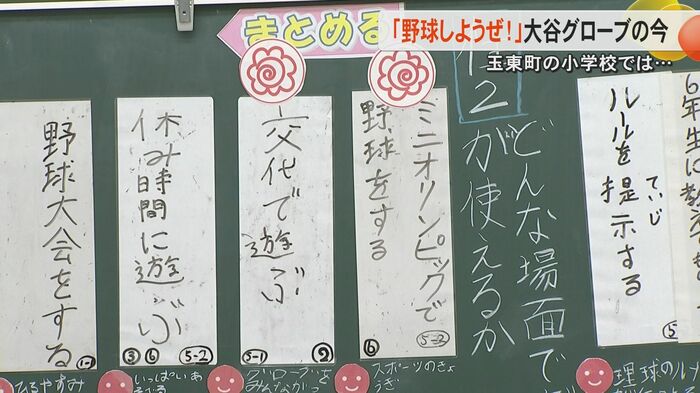 「野球しようぜ！」大谷グローブの今
玉東町の小学校では…
まとめる
ルールを提示する
ていじ
⑤
どんな場面で
が使えるか
ミニオリンピックで
野球をする
⑥
5-2
交代で遊ぶ
5-1
⑨
休み時間に遊ぶ
③
⑥
5-2
野球大会をする
1-1
スポーツのきょ
うぎ
グローブを
みんながつ
いっぱいあ
ひるやすみ